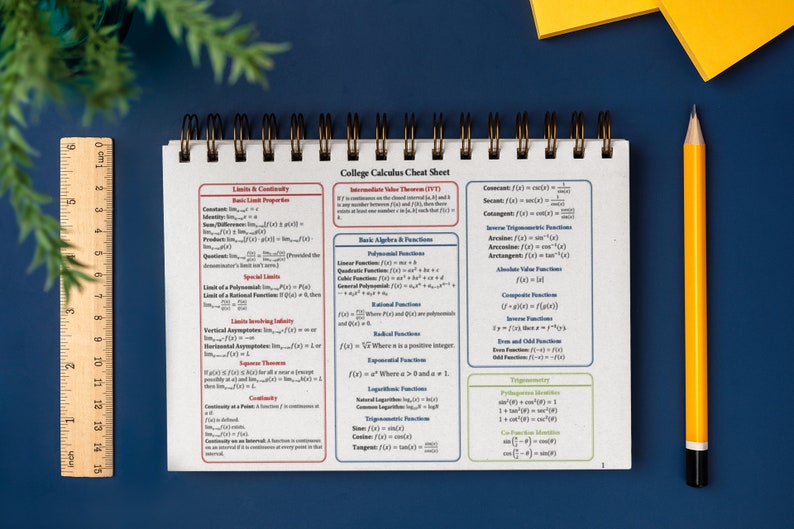 College Calculus Cheat Sheet
Limits & Continuity
Basic Limit Properties
Constant: lim_{x→a} c = c
Identity: lim_{x→a} x = a
Sum/Difference: lim_{x→a}[f(x) ± g(x)] =
lim_{x→a} f(x) ± lim_{x→a} g(x)
Product: lim_{x→a}[f(x) · g(x)] = lim_{x→a} f(x) ·
lim_{x→a} g(x)
Quotient: lim_{x→a} f(x)/g(x) = lim_{x→a} f(x)/lim_{x→a} g(x) (Provided the
denominator's limit isn't zero.)
Special Limits
Limit of a Polynomial: lim_{x→a} P(x) = P(a)
Limit of a Rational Function: If Q(a) ≠ 0, then
lim_{x→a} P(x)/Q(x) = P(a)/Q(a)
Limits Involving Infinity
Vertical Asymptotes: lim_{x→a⁺} f(x) = ∞ or
lim_{x→a⁻} f(x) = −∞
Horizontal Asymptotes: lim_{x→∞} f(x) = L or
lim_{x→−∞} f(x) = L
Squeeze Theorem
If g(x) ≤ f(x) ≤ h(x) for all x near a (except
possibly at a) and lim_{x→a} g(x) = lim_{x→a} h(x) = L
then lim_{x→a} f(x) = L.
Continuity
Continuity at a Point: A function f is continuous at
a if.
f(a) is defined.
lim_{x→a} f(x) exists.
lim_{x→a} f(x) = f(a).
Continuity on an Interval: A function is continuous
on an interval if it is continuous at every point in that
interval.
Intermediate Value Theorem (IVT)
If f is continuous on the closed interval [a, b] and k
is any number between f(a) and f(b), then there
exists at least one number c in [a, b] such that f(c) =
k.
Basic Algebra & Functions
Polynomial Functions
Linear Function: f(x) = mx + b
Quadratic Function: f(x) = ax² + bx + c
Cubic Function: f(x) = ax³ + bx² + cx + d
General Polynomial: f(x) = aₙxⁿ + aₙ₋₁xⁿ⁻¹ +
⋯ + a₂x² + a₁x + a₀
Rational Functions
f(x) = P(x)/Q(x) Where P(x) and Q(x) are polynomials
and Q(x) ≠ 0.
Radical Functions
f(x) = ⁿ√x Where n is a positive integer.
Exponential Functions
f(x) = aˣ Where a > 0 and a ≠ 1.
Logarithmic Functions
Natural Logarithm: logₑ(x) = ln(x)
Common Logarithm: log₁₀N = logN
Trigonometric Functions
Sine: f(x) = sin(x)
Cosine: f(x) = cos(x)
Tangent: f(x) = tan(x) = sin(x)/cos(x)
Cosecant: f(x) = csc(x) = 1/sin(x)
Secant: f(x) = sec(x) = 1/cos(x)
Cotangent: f(x) = cot(x) = cos(x)/sin(x)
Inverse Trigonometric Functions
Arcsine: f(x) = sin⁻¹(x)
Arccosine: f(x) = cos⁻¹(x)
Arctangent: f(x) = tan⁻¹(x)
Absolute Value Functions
f(x) = |x|
Composite Functions
(f ∘ g)(x) = f(g(x))
Inverse Functions
If y = f(x), then x = f⁻¹(y).
Even and Odd Functions
Even Function: f(−x) = f(x)
Odd Function: f(−x) = −f(x)
Trigonometry
Pythagorean Identities
sin²(θ) + cos²(θ) = 1
1 + tan²(θ) = sec²(θ)
1 + cot²(θ) = csc²(θ)
Co-Function Identities
sin(π/2 − θ) = cos(θ)
cos(π/2 − θ) = sin(θ)
1
0 cm 1
5
10
11
12
13
14
15
6
2
1
inch